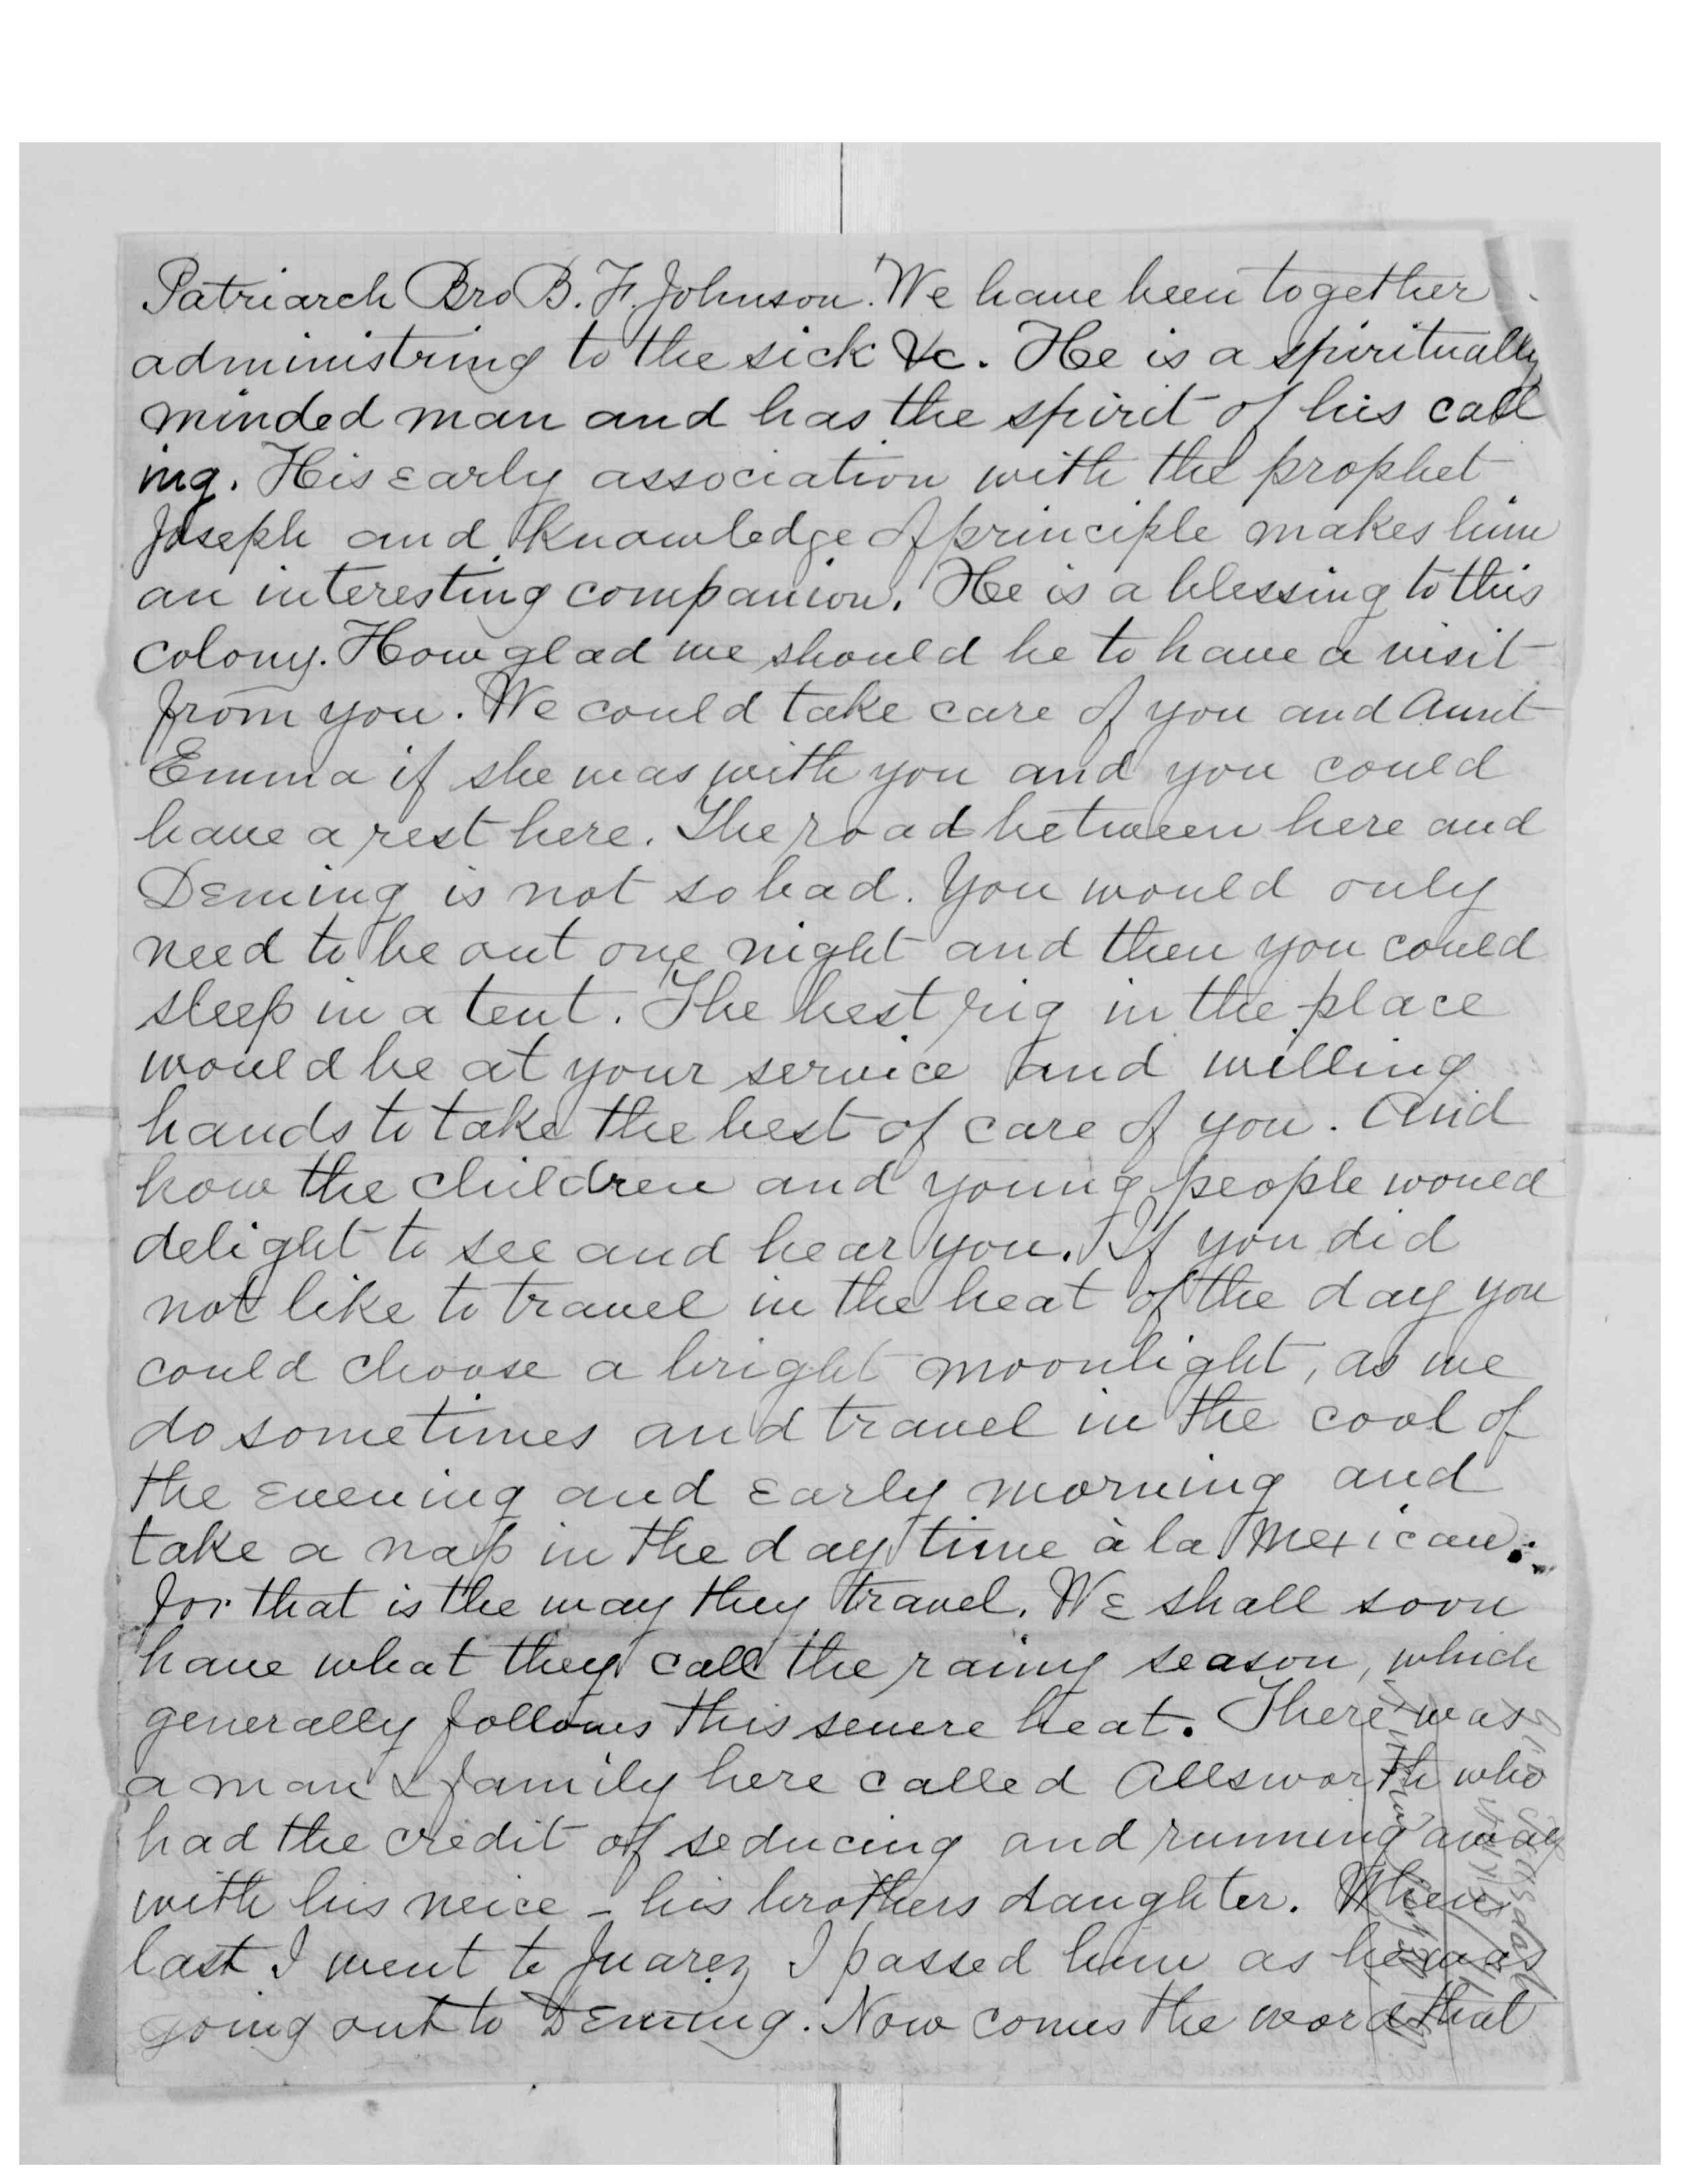 Patriarch Bro B. F. Johnson. We have been together
administring to the sick &c. He is a spiritually
minded man and has the spirit of his call
ing. His early association with the prophet
Joseph and knowledge of principle makes him
an interesting companion. He is a blessing to this
colony. How glad we should be to have a visit
from you. We could take care of you and Aunt
Emma if she was with you and you could
have a rest here. The road between here and
Deming is not so bad. You would only
need to be out one night and then you could
sleep in a tent. The best rig in the place
would be at your service and willing
hands to take the best of care of you. And
how the children and young people would
delight to see and hear you. If you did
not like to travel in the heat of the day you
could choose a bright moonlight, as we
do sometimes and travel in the cool of
the evening and early morning and
take a nap in the day time à la Mexican.
for that is the way they travel. We shall soon
have what they call the rainy season, which
generally follows this severe heat. There was
a man & family here called Allsworth who
had the credit of seducing and running away
with his neice - his brothers daughter. When
last I went to Juarez I passed him as he was
going out to Deming. Now comes the word that